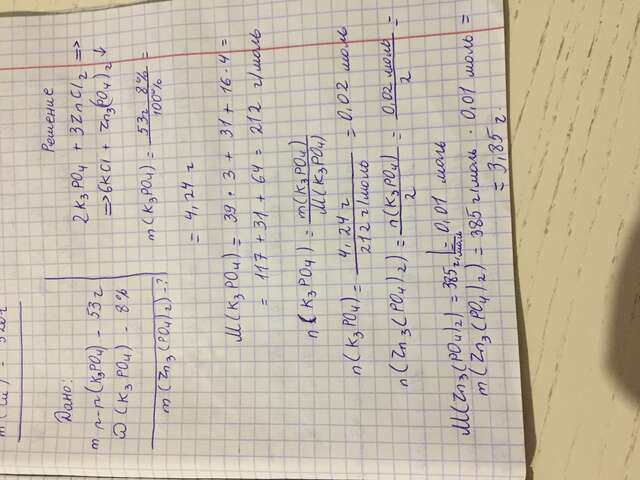 Дано:
m р-р(K3PO4) - 53г
ω(K3PO4) - 8%
m(Zn3(PO4)2)-?
Решение
2K3PO4 + 3ZnCl2 =>
=>6KCl + Zn3(PO4)2↓
m(K3PO4) = 53г 8% / 100% =
= 4,24 г
M(K3PO4) = 39 · 3 + 31 + 16 · 4 =
= 117 + 31 + 64 = 212 г/моль
n(K3PO4) = m(K3PO4) / M(K3PO4)
n(K3PO4) = 4,24 г / 212 г/моль = 0,02 моль
n(Zn3(PO4)2) = n(K3PO4) / 2 = 0,02 моль / 2 =
= 0,01 моль
M(Zn3(PO4)2) = 385 г/моль
m(Zn3(PO4)2) = 385 г/моль · 0,01 моль =
= 3,85 г.